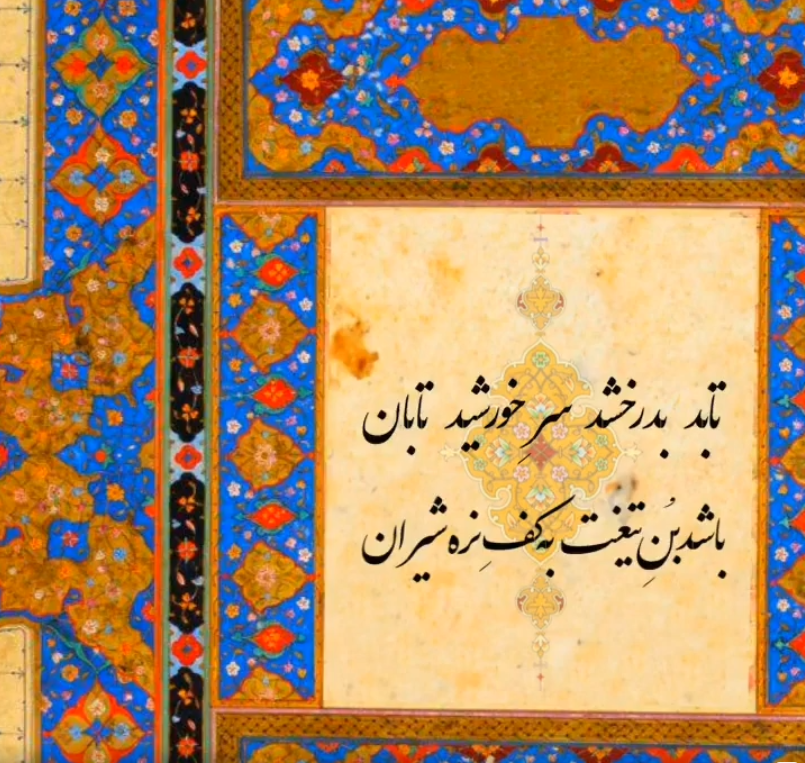 تابد بدرخشد سرِ خورشید تابان
باشد بُنِ تیغت به کفِ نره شیران